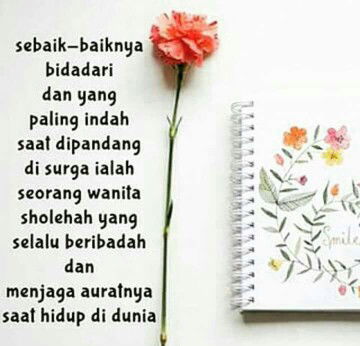 sebaik-baiknya
bidadari
dan yang
paling indah
saat dipandang
di surga ialah
seorang wanita
sholehah yang
selalu beribadah
dan
menjaga auratnya
saat hidup di dunia
Smile